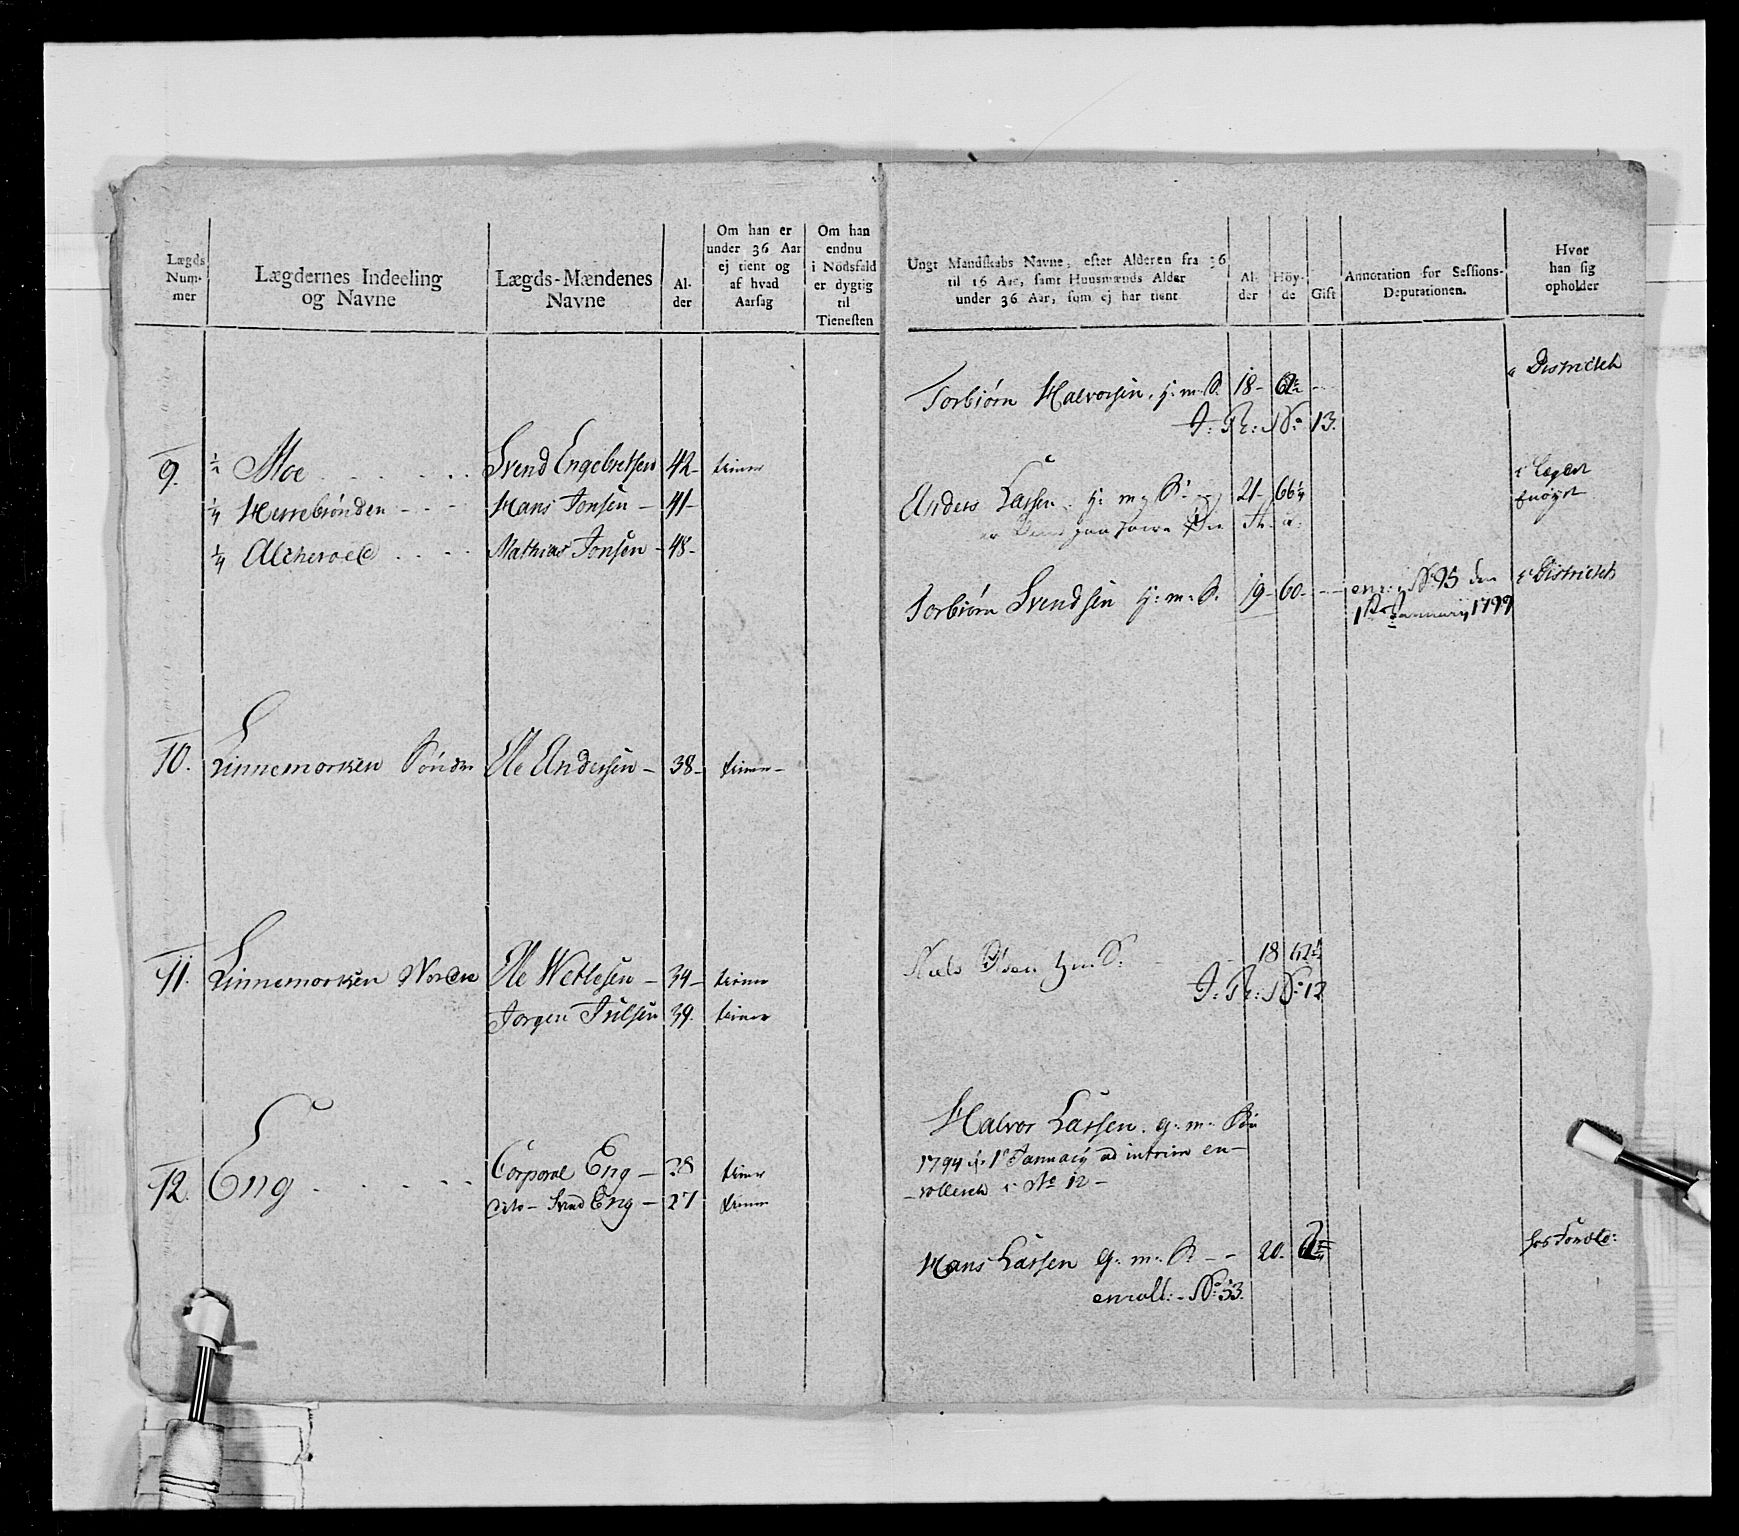 Lægds Nummer
Lægdernes Indeeling og Navne
Lægds-Mændenes Navne
Alder
Om han er under 36 Aar ej tient og af hvad Aarsag
Om han endnu i Nödsfald er dygtig til Tienesten
Ungt Mandskabs Navne, efter Alderen fra 36 til 16 Aar, samt Huusmænds Alder under 36 Aar, som ej har tient
Alder
Höyde
Gift
Annotation for Sessions-Deputationen.
Hvor han sig opholder
Torbiørn Halvorsen, h: m: S. 18 - i Districtet
J: R: No 13.
9. ½ Moe Svend Engebretsen 42 - tiener
¼ Herrebrønden Hans Jonsen - 41 -
¼ Alcheroed Mathias Jonsen - 48 -
Anders Larsen h: m: S: 21 - 66¼ i Lægdet
Torbiørn Svendsen h: m: S. 19 - 60 - enr: No 95 den i Districtet
1ste January 1799
10. Linnemarken Sóndre Ole Andersen - 38 - tiener -
11. Linnemarken Nordre Ole Wetlesen - 34 - tiener
Jorgen Juelsen 39. tiener
Niels Olsen h m S. 18 62½
J: R: No 12
12. Eng Corporal Eng - 28 tiener
dito - Svend Eng - 27 tiener
Halvor Larsen. g: m: Søn
1794 d: 1ste January ad intrim en-
-rolleret i No 12 -
Hans Larsen g: m: S. - - 20.
enroll: - No 53.